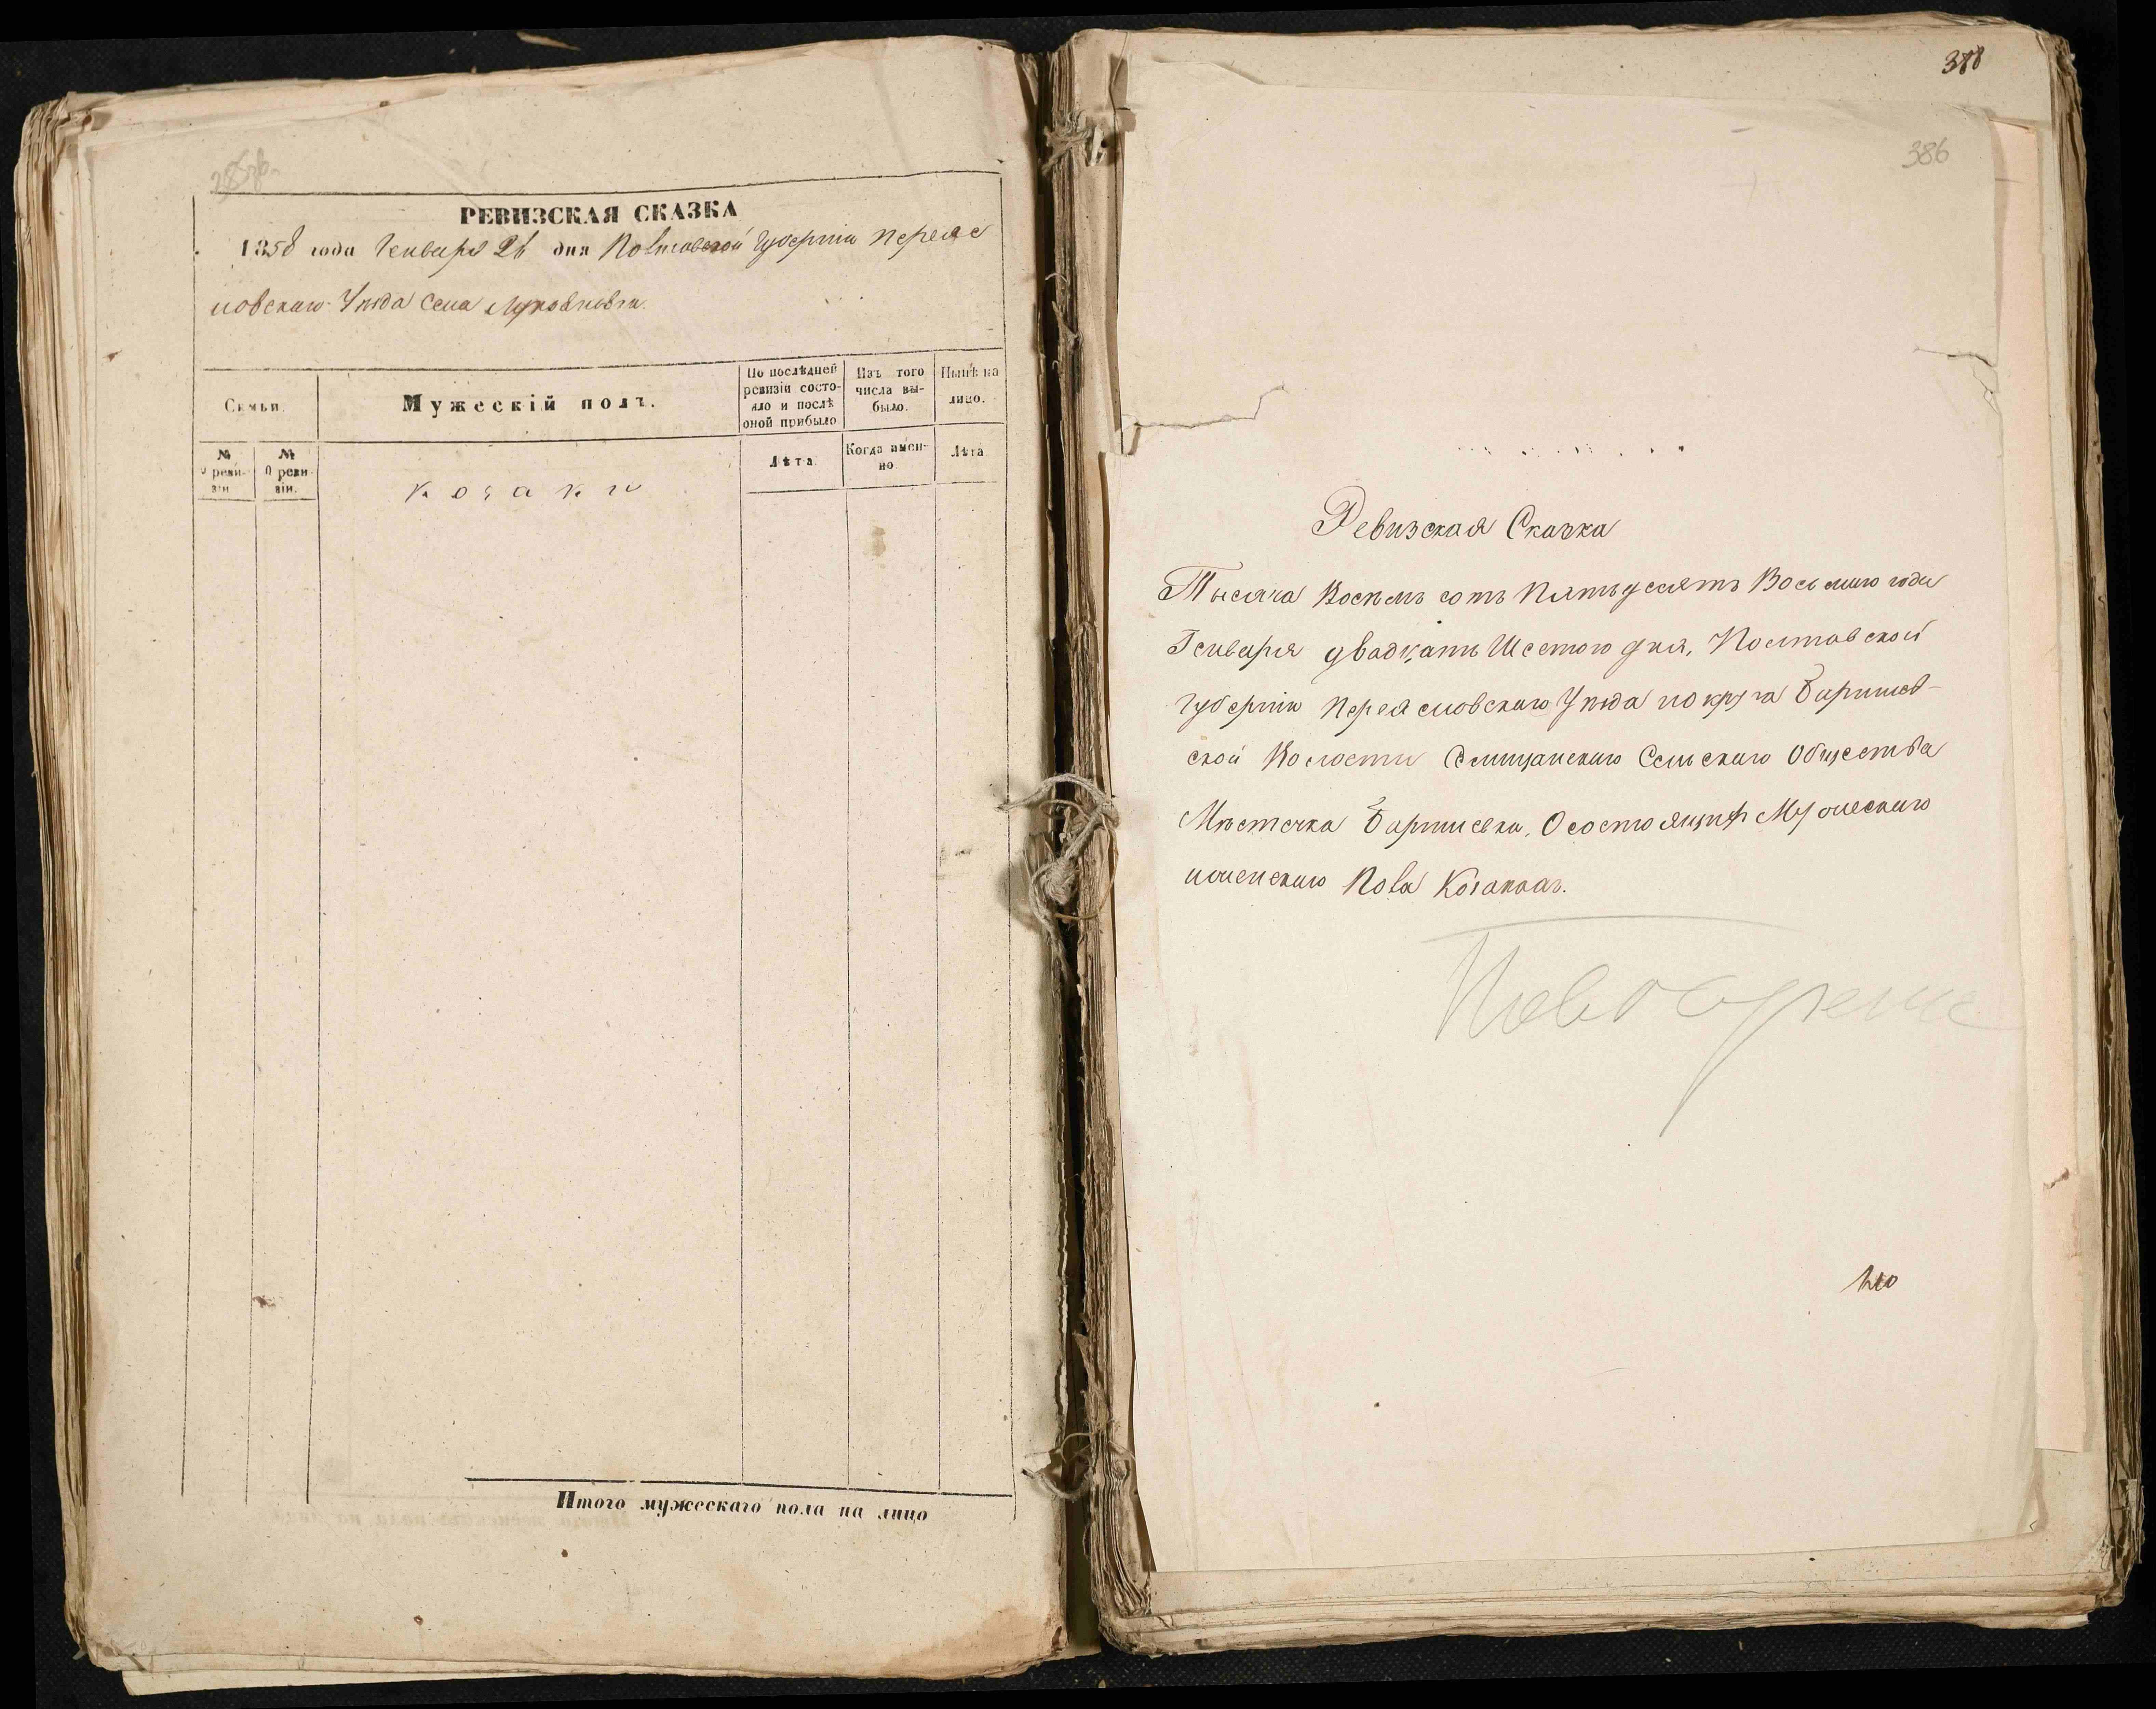 РЕВИЗСКАЯ СКАЗКА
1858 года Генваря 26 дня Полтавской Губерніи Переяс
ловскаго Уѣзда Села Лукьяновки.
Семьи.
Мужескій полъ.
По послѣдней ревизіи состояло и послѣ оной прибыло
Изъ того числа выбыло.
Нынѣ на лицо.
№ 9 ревизіи
№ 10 ревизіи.
Лѣта.
Когда именно.
Лѣта
Козаки
Итого мужескаго пола на лицо
388
386
Ревизская Сказка
Тысяча Восемь сотъ Пятьдесятъ Восьмого года
Генваря двадцать Шестого дня, Полтавской
Губерніи Переясловскаго Уѣзда и округа Баришев-
ской Волости Селищанскаго Сельскаго Общества
Мѣстечка Баришевки, О состоящихъ Мужескаго
и женскаго Пола Козакахъ.